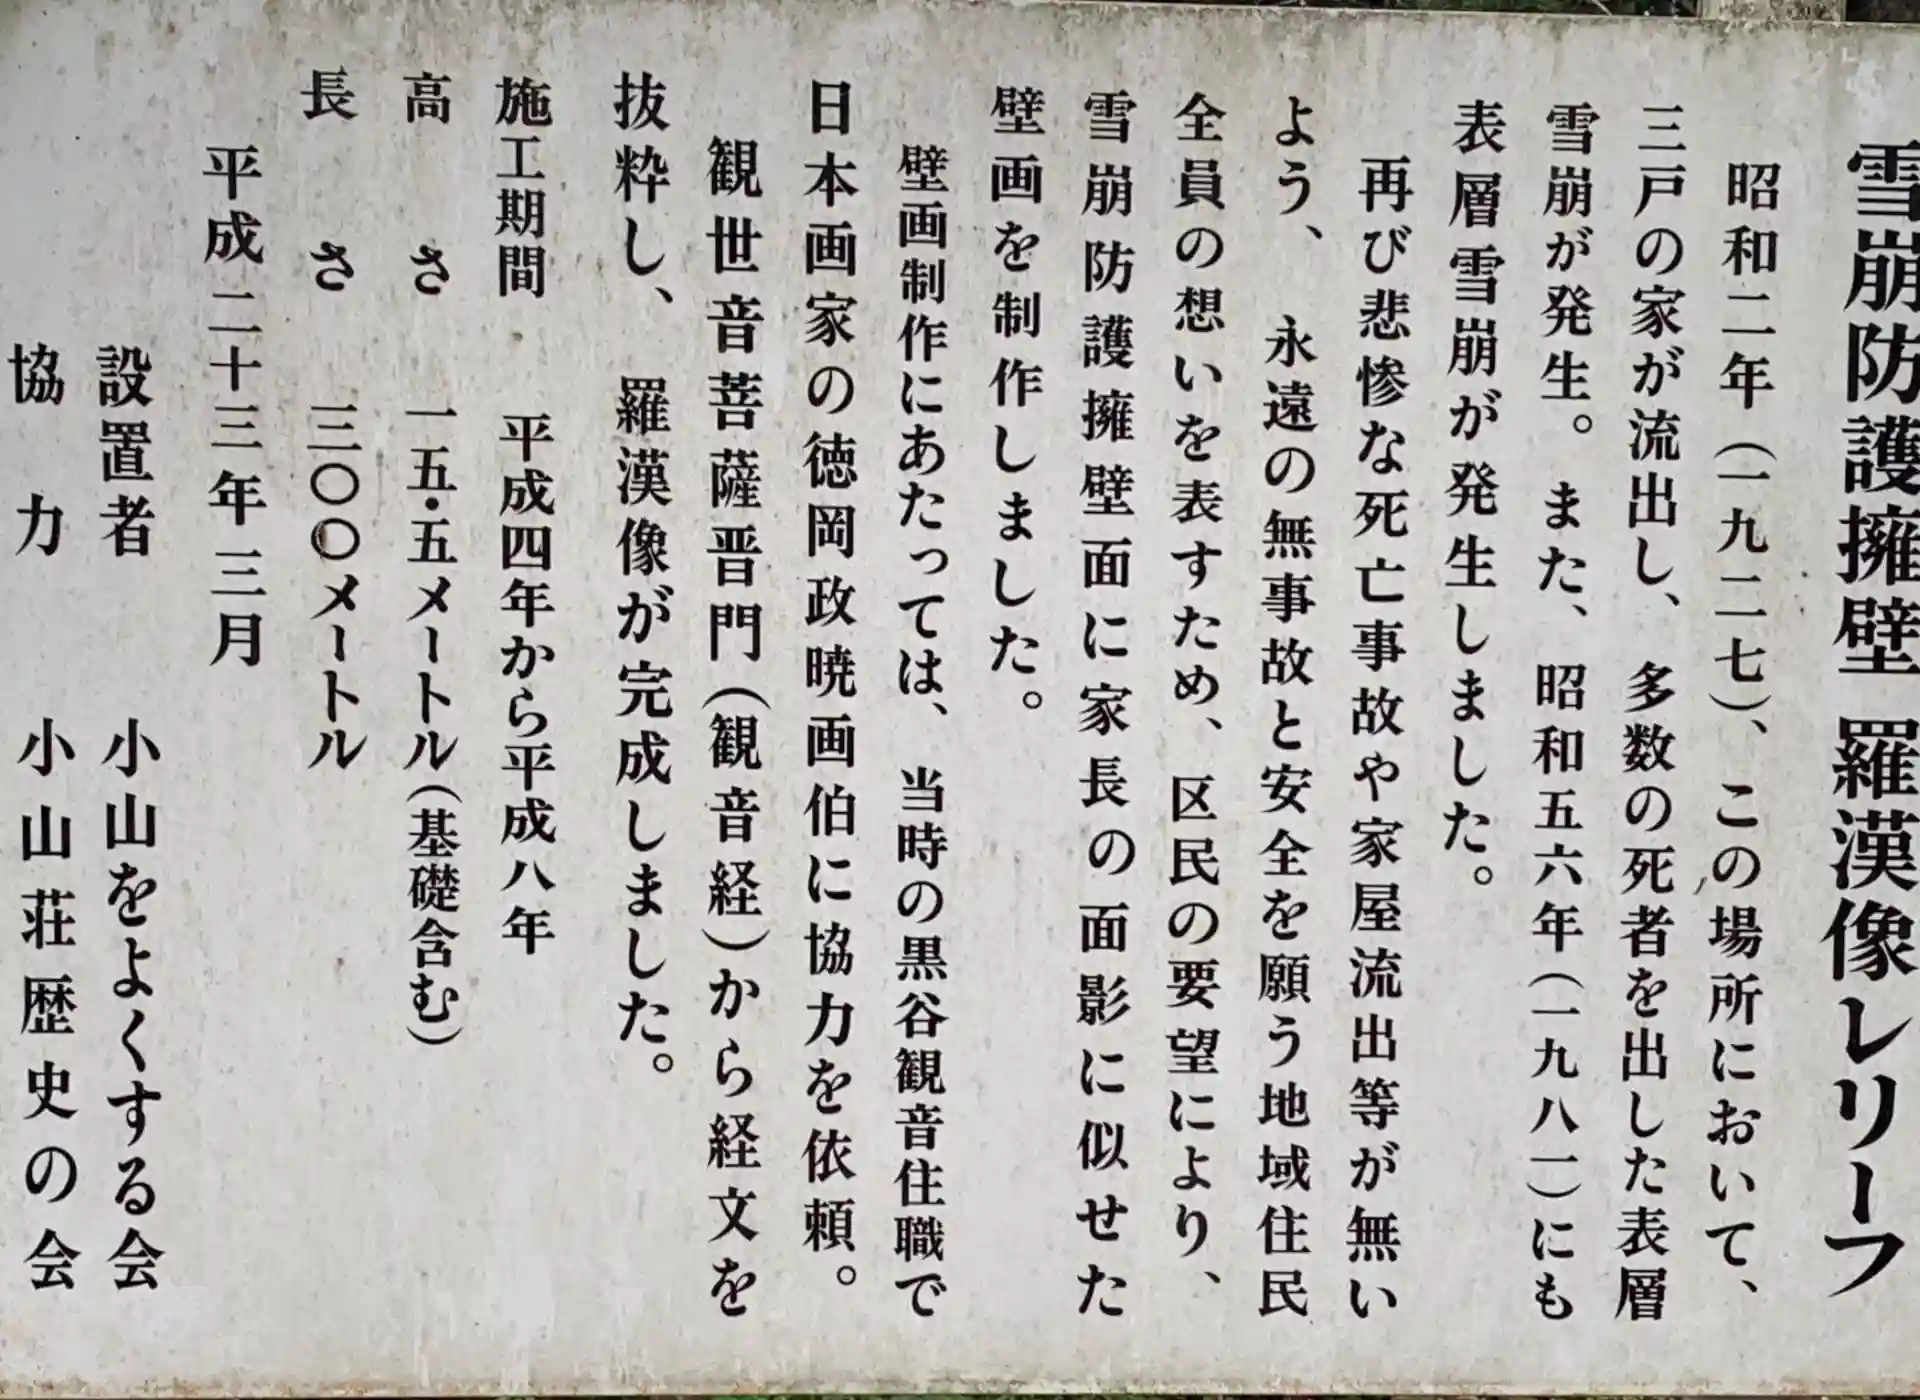 雪崩防護擁壁 羅漢像レリーフ
昭和二年(一九二七)、この場所において、
三戸の家が流出し、多数の死者を出した表層
雪崩が発生。また、昭和五六年(一九八一)にも
表層雪崩が発生しました。
再び悲惨な死亡事故や家屋流出等が無い
よう、永遠の無事故と安全を願う地域住民
全員の想いを表すため、区民の要望により、
雪崩防護擁壁面に家長の面影に似せた
壁画を制作しました。
壁画制作にあたっては、当時の黒谷観音住職で
日本画家の徳岡政暁画伯に協力を依頼。
観世音菩薩晋門(観音経)から経文を
抜粋し、羅漢像が完成しました。
施工期間 平成四年から平成八年
高さ 一五・五メートル(基礎含む)
長さ 三〇〇メートル
平成二十三年三月
設置者 小山をよくする会
協力 小山荘歴史の会